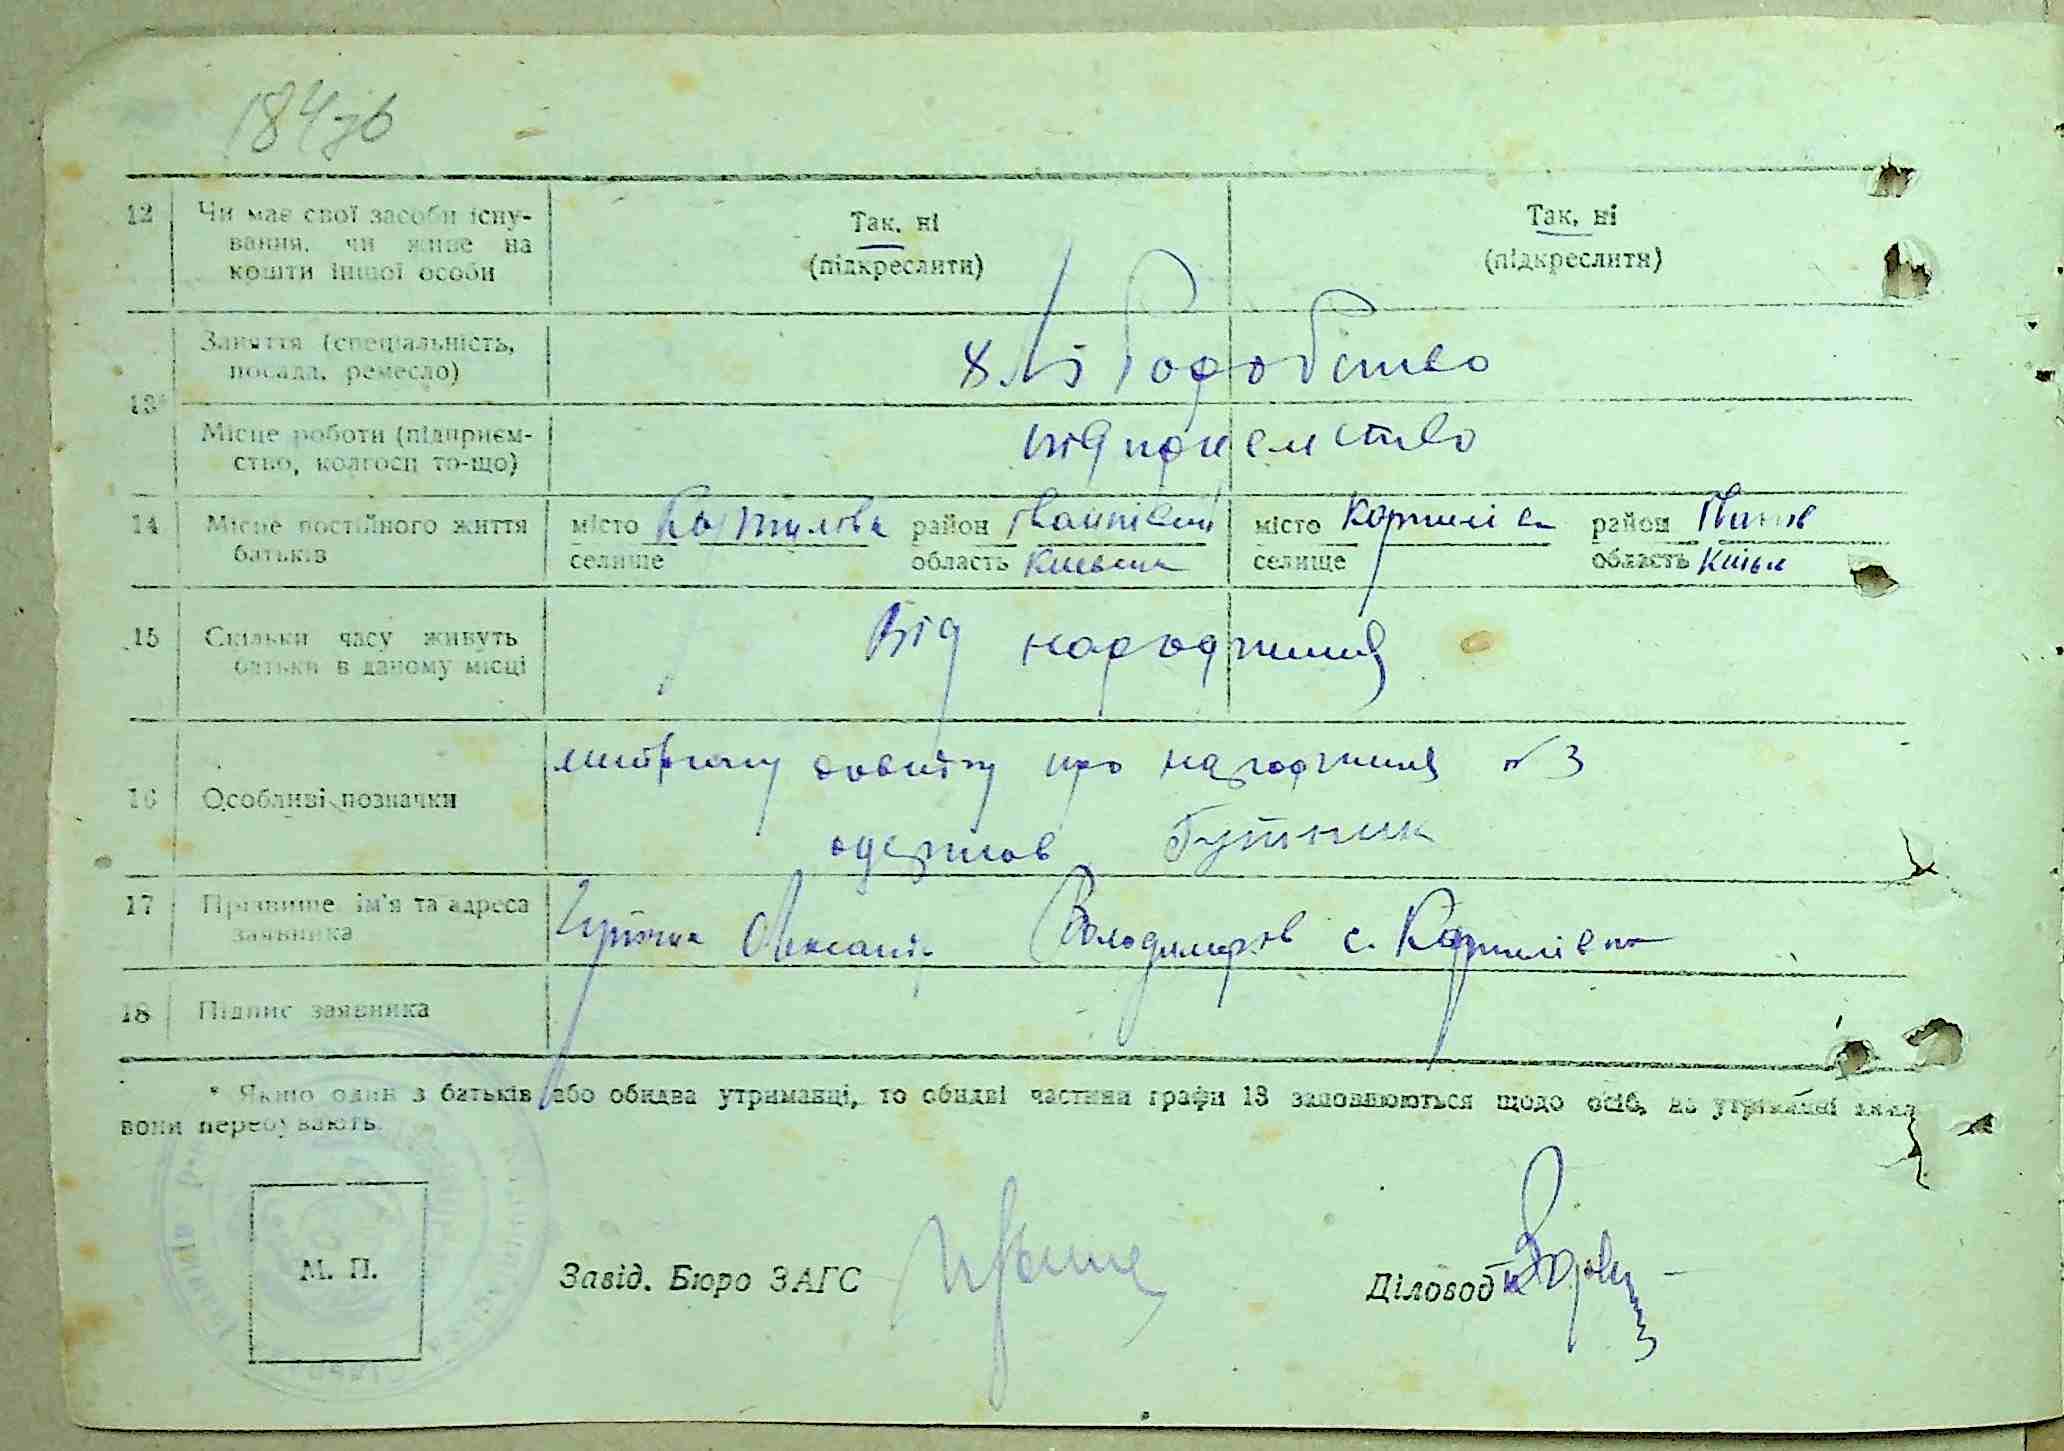 184зв
12 Чи має свої засоби існу-
вання, чи живе на
кошти іншої особи
Так, ні
(підкреслити)
Так, ні
(підкреслити)
13*
Заняття (спеціальність,
посада, ремесло)
хліборобство
Місце роботи (підприєм-
ство, колгосп то-що)
підприємство
14 Місце постійного життя
батьків
місто район
селище область Київськ
місто район Іванків
селище область Київськ
15 Скільки часу живуть
батьки в даному місці
Від народження
16 Особливі позначки
про народження № 3
одержав
17 Прізвище, ім'я та адреса
заявника
Володимиров с.
18 Підпис заявника
* Якщо один з батьків або обидва утриманці, то обидві частини графи 13 заповнюються щодо осіб, на утриманні яких
вони перебувають.
М. П.
Завід. Бюро ЗАГС
Діловод